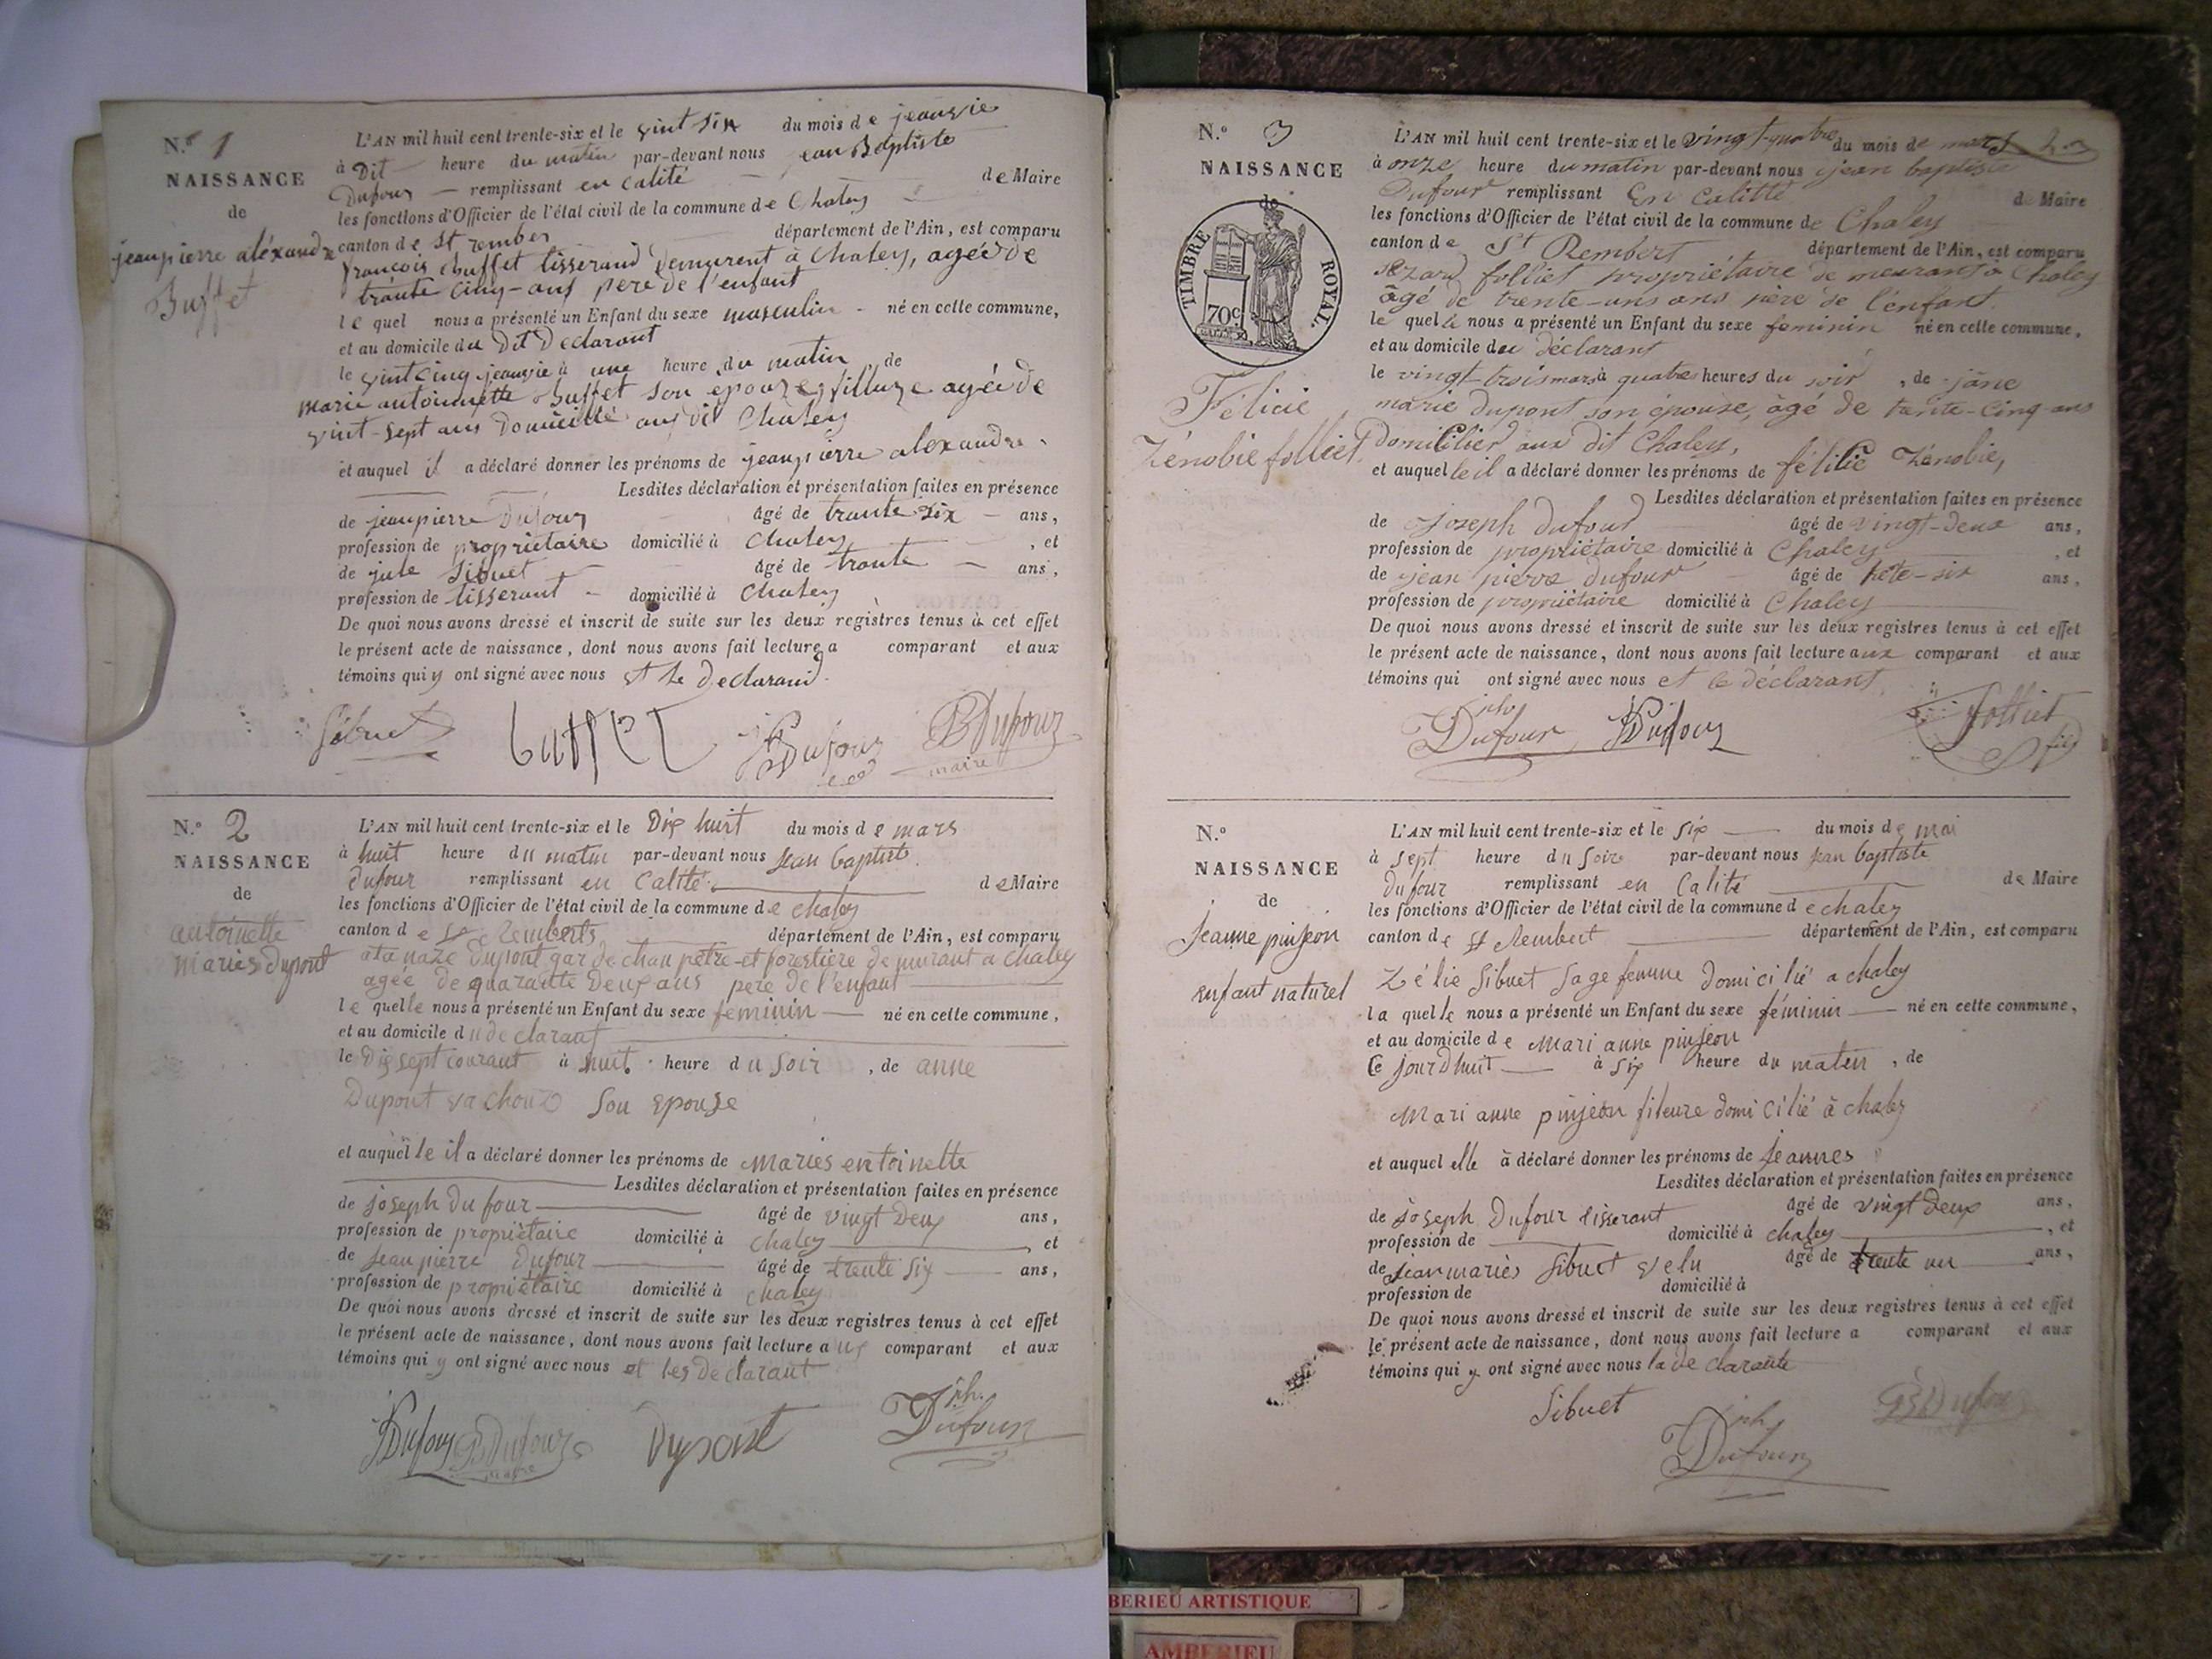 N.º 1
NAISSANCE
de
jeanpierre aléxandre
Buffet
L'AN mil huit cent trente-six et le vint six du mois de jeanvie
à Dit heure du matin par-devant nous jean Baptiste
Dufour remplissant en calité de Maire
les fonctions d'Officier de l'état civil de la commune de Chaley
canton de St rember département de l'Ain, est comparu
françois Buffet tisserand Demeurent à Chaley, agée de
trante cinq-ans pere de l'enfant
le quel nous a présenté un Enfant du sexe masculin né en cette commune,
et au domicile du Dit Declarant
le vint cinq jeanvie à une heure du matin, de
marie antoinnette Buffet son epouze, filluze agée de
vint-sept ans Domicillé aux dit Chaley
et auquel il a déclaré donner les prénoms de jeanpierre alexandre.
Lesdites déclaration et présentation faites en présence
de jeanpierre Dufour âgé de trante six ans,
profession de propriétaire domicilié à Chaley, et
de jule Sibuet âgé de trante ans,
profession de tisserant domicilié à Chaley
De quoi nous avons dressé et inscrit de suite sur les deux registres tenus à cet effet
le présent acte de naissance, dont nous avons fait lecture a comparant et aux
témoins qui y ont signé avec nous et le Declarand.
Sibuet Buffet JP Dufour JB Dufour
maire
N.º 2
NAISSANCE
de
antoinette
maries dupont
L'AN mil huit cent trente-six et le Dix huit du mois de mars
à huit heure du matin par-devant nous jean baptiste
dufour remplissant en Calité de Maire
les fonctions d'Officier de l'état civil de la commune de chaley
canton de St Remberts département de l'Ain, est comparu
atanaze Dupont gar de chanpetre et forestiere de murant a Chaley
agée de quarantte Deux ans pere de l'enfant
le quelle nous a présenté un Enfant du sexe feminin né en cette commune,
et au domicile du declarant
le Dixsept courant à huit heure du soir, de anne
Dupont vachon Son epouse
et auquel le il a déclaré donner les prénoms de maries entoinette
Lesdites déclaration et présentation faites en présence
de joseph du four âgé de vingt Deux ans,
profession de propriètaire domicilié à chaley, et
de jean pierre Dufour âgé de trente six ans,
profession de propriètaire domicilié à chaley
De quoi nous avons dressé et inscrit de suite sur les deux registres tenus à cet effet
le présent acte de naissance, dont nous avons fait lecture aux comparant et aux
témoins qui y ont signé avec nous et les declarant
JP Dufour JB Dufour Dupont jph. Dufour
maire
N.º 3
NAISSANCE
de
TIMBRE ROYAL.
70c
Félicie
Zénobie folliet
L'AN mil huit cent trente-six et le vingt-quatre du mois de mars
à onze heure du matin par-devant nous jean baptiste
Dufour remplissant En calitté de Maire
les fonctions d'Officier de l'état civil de la commune de Chaley
canton de St Rembert département de l'Ain, est comparu
folliet propriétaire de meurant à Chaley
âgé de trente-uns ans père de l'enfant.
le quelle nous a présenté un Enfant du sexe feminin né en cette commune,
et au domicile du déclarant
le vingt-trois mars à quatre heures du soir, de jâne
marie dupont son épouze, âgé de trente-cinq ans
domicilier aux dit Chaley,
et auquel le il a déclaré donner les prénoms de félilie Zénobie,
Lesdites déclaration et présentation faites en présence
de joseph dufour âgé de vingt-deux ans,
profession de propriétaire domicilié à Chaley, et
de jean pierre dufour âgé de trete-six ans,
profession de propriétaire domicilié à Chaley
De quoi nous avons dressé et inscrit de suite sur les deux registres tenus à cet effet
le présent acte de naissance, dont nous avons fait lecture aux comparant et aux
témoins qui ont signé avec nous et le déclarant
jph Dufour JP Dufour folliet fils
N.º
NAISSANCE
de
Jeanne pinjeon
enfant naturel
L'AN mil huit cent trente-six et le six du mois de mai
à sept heure du soire par-devant nous jean baptiste
Dufour remplissant en Calité de Maire
les fonctions d'Officier de l'état civil de la commune de chaley
canton de St Rembert département de l'Ain, est comparu
Zélie Sibuet Sage femme domicilié a chaley
la quelle nous a présenté un Enfant du sexe féminin né en cette commune,
et au domicile de Mari anne pinjeon
Ce jour d'huit à six heure du matin, de
Mari anne pinjeon fileure domicilié à chaley
et auquel elle à déclaré donner les prénoms de jeannes
Lesdites déclaration et présentation faites en présence
de joseph Dufour tisserant âgé de vingt deux ans,
profession de domicilié à chaley, et
de jean mariès Sibuet velu âgé de trente un ans,
profession de domicilié à
De quoi nous avons dressé et inscrit de suite sur les deux registres tenus à cet effet
le présent acte de naissance, dont nous avons fait lecture a comparant et aux
témoins qui y ont signé avec nous la de clarante
Sibuet jph Dufour JB Dufour
BERIEU ARTISTIQUE
AMBERIEU